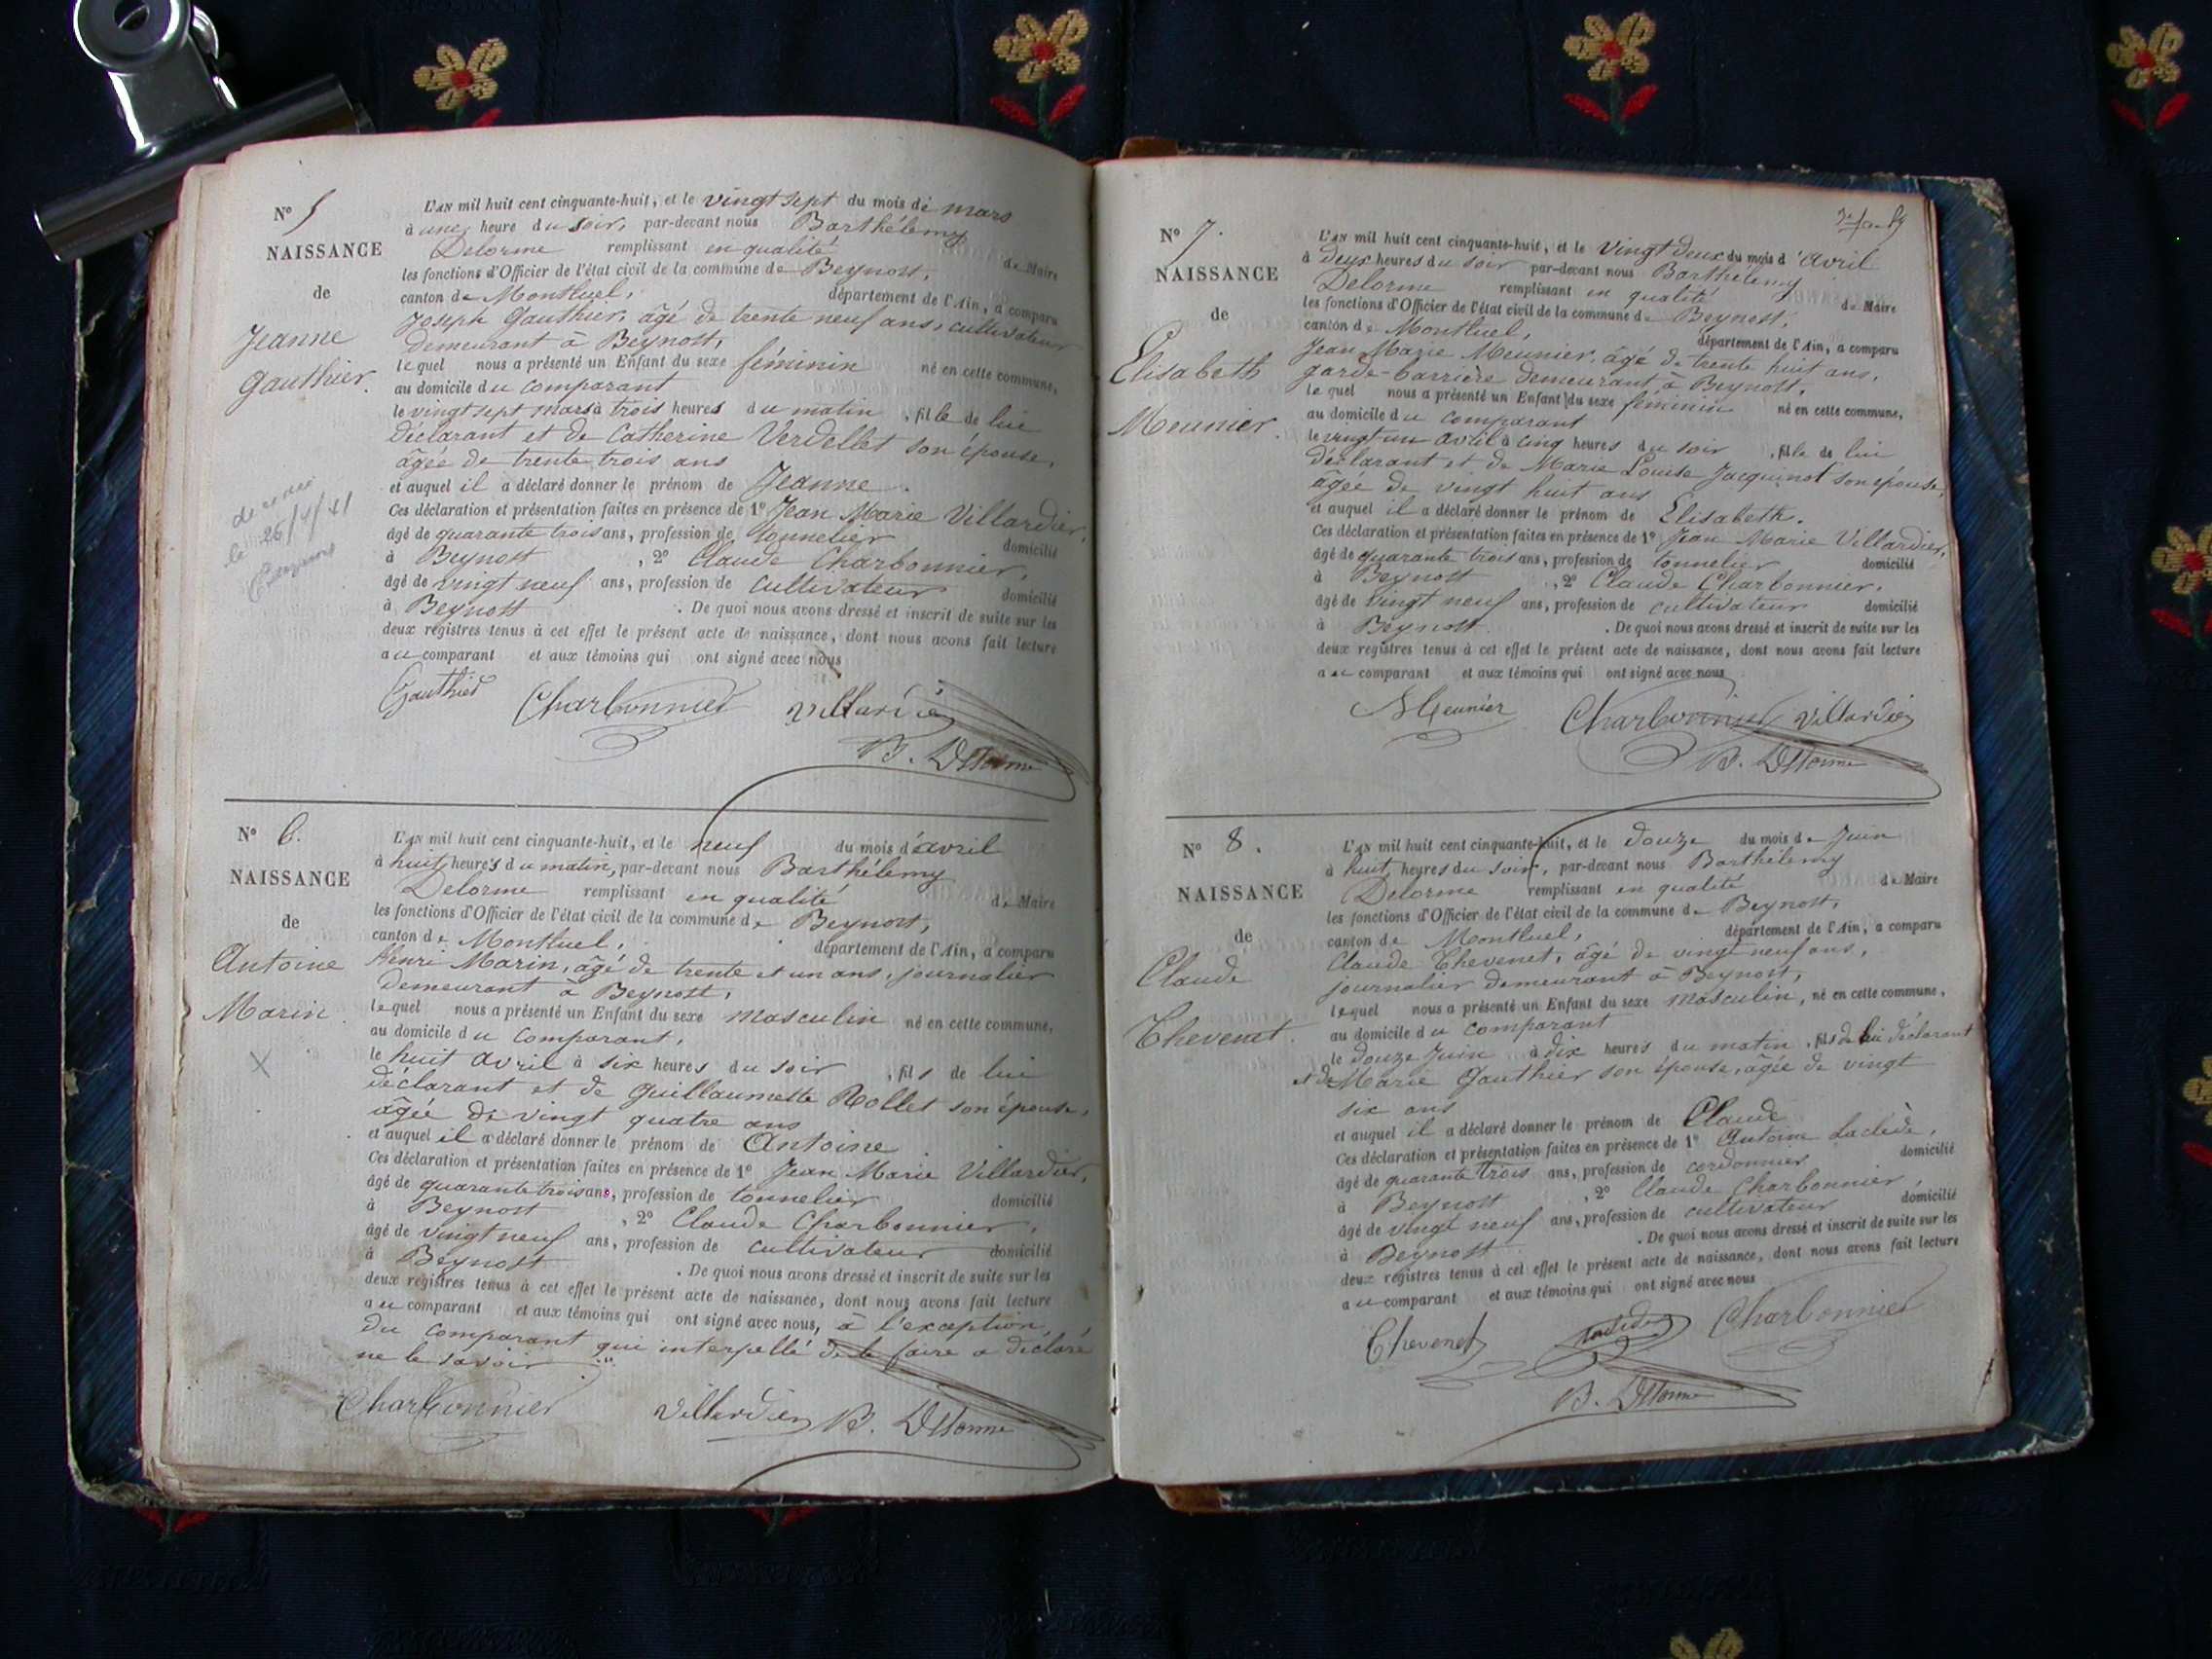 N° 5
NAISSANCE
de
Jeanne
Gauthier.
décédée
le 26/4/41
L'AN mil huit cent cinquante-huit, et le vingt sept du mois de mars
à une heure du soir, par-devant nous Barthélemy
Delorme remplissant en qualité de Maire
les fonctions d'Officier de l'état civil de la commune de Beynost,
canton de Montluel, département de l'Ain, a comparu
Joseph Gauthier, âgé de trente neuf ans, cultivateur
demeurant à Beynost,
lequel nous a présenté un Enfant du sexe féminin né en cette commune,
au domicile du comparant
le vingt sept mars à trois heures du matin, fille de lui
déclarant et de Catherine Verdellet son épouse,
âgée de trente trois ans
et auquel il a déclaré donner le prénom de Jeanne.
Ces déclaration et présentation faites en présence de 1° Jean Marie Villardier,
âgé de quarante trois ans, profession de tonnelier domicilié
à Beynost, 2° Claude Charbonnier,
âgé de vingt neuf ans, profession de cultivateur domicilié
à Beynost. De quoi nous avons dressé et inscrit de suite sur les
deux registres tenus à cet effet le présent acte de naissance, dont nous avons fait lecture
au comparant et aux témoins qui ont signé avec nous
Gauthier Charbonnier Villardier
B. Delorme
N° 6.
NAISSANCE
de
Antoine
Marin.
X
L'AN mil huit cent cinquante-huit, et le neuf du mois d'avril
à huit heures du matin, par-devant nous Barthélemy
Delorme remplissant en qualité de Maire
les fonctions d'Officier de l'état civil de la commune de Beynost,
canton de Montluel, département de l'Ain, a comparu
Henri Marin, âgé de trente et un ans, journalier
demeurant à Beynost,
lequel nous a présenté un Enfant du sexe masculin né en cette commune,
au domicile du comparant,
le huit avril à six heures du soir, fils de lui
déclarant et de Guillaumette Rollet son épouse,
âgée de vingt quatre ans
et auquel il a déclaré donner le prénom de Antoine
Ces déclaration et présentation faites en présence de 1° Jean Marie Villardier,
âgé de quarante trois ans, profession de tonnelier domicilié
à Beynost, 2° Claude Charbonnier,
âgé de vingt neuf ans, profession de cultivateur domicilié
à Beynost. De quoi nous avons dressé et inscrit de suite sur les
deux registres tenus à cet effet le présent acte de naissance, dont nous avons fait lecture
au comparant et aux témoins qui ont signé avec nous, à l'exception
du comparant qui interpellé de le faire a déclaré
ne le savoir
Charbonnier Villardier B. Delorme
N° 7.
NAISSANCE
de
Elisabeth
Meunier.
L'AN mil huit cent cinquante-huit, et le vingt deux du mois d'avril
à deux heures du soir par-devant nous Barthélemy
Delorme remplissant en qualité de Maire
les fonctions d'Officier de l'état civil de la commune de Beynost,
canton de Montluel, département de l'Ain, a comparu
Jean Marie Meunier, âgé de trente huit ans,
garde-barrière demeurant à Beynost,
lequel nous a présenté un Enfant du sexe féminin né en cette commune,
au domicile du comparant
le vingt un avril à cinq heures du soir, fille de lui
déclarant et de Marie Louise Jacquinot son épouse,
âgée de vingt huit ans
et auquel il a déclaré donner le prénom de Elisabeth.
Ces déclaration et présentation faites en présence de 1° Jean Marie Villardier,
âgé de quarante trois ans, profession de tonnelier domicilié
à Beynost, 2° Claude Charbonnier,
âgé de vingt neuf ans, profession de cultivateur domicilié
à Beynost. De quoi nous avons dressé et inscrit de suite sur les
deux registres tenus à cet effet le présent acte de naissance, dont nous avons fait lecture
au comparant et aux témoins qui ont signé avec nous
Meunier Charbonnier Villardier
B. Delorme
N° 8.
NAISSANCE
de
Claude
Thevenet.
L'AN mil huit cent cinquante-huit, et le douze du mois de Juin
à huit heures du soir, par-devant nous Barthélemy
Delorme remplissant en qualité de Maire
les fonctions d'Officier de l'état civil de la commune de Beynost,
canton de Montluel, département de l'Ain, a comparu
Claude Thevenet, âgé de vingt neuf ans,
journalier demeurant à Beynost,
lequel nous a présenté un Enfant du sexe masculin, né en cette commune,
au domicile du comparant
le douze Juin à dix heures du matin, fils de lui déclarant
et de Marie Gauthier son épouse, âgée de vingt
six ans
et auquel il a déclaré donner le prénom de Claude
Ces déclaration et présentation faites en présence de 1° Antoine Laclède,
âgé de quarante trois ans, profession de cordonnier domicilié
à Beynost, 2° Claude Charbonnier,
âgé de vingt neuf ans, profession de cultivateur domicilié
à Beynost. De quoi nous avons dressé et inscrit de suite sur les
deux registres tenus à cet effet le présent acte de naissance, dont nous avons fait lecture
au comparant et aux témoins qui ont signé avec nous
Thevenet Laclède Charbonnier
B. Delorme